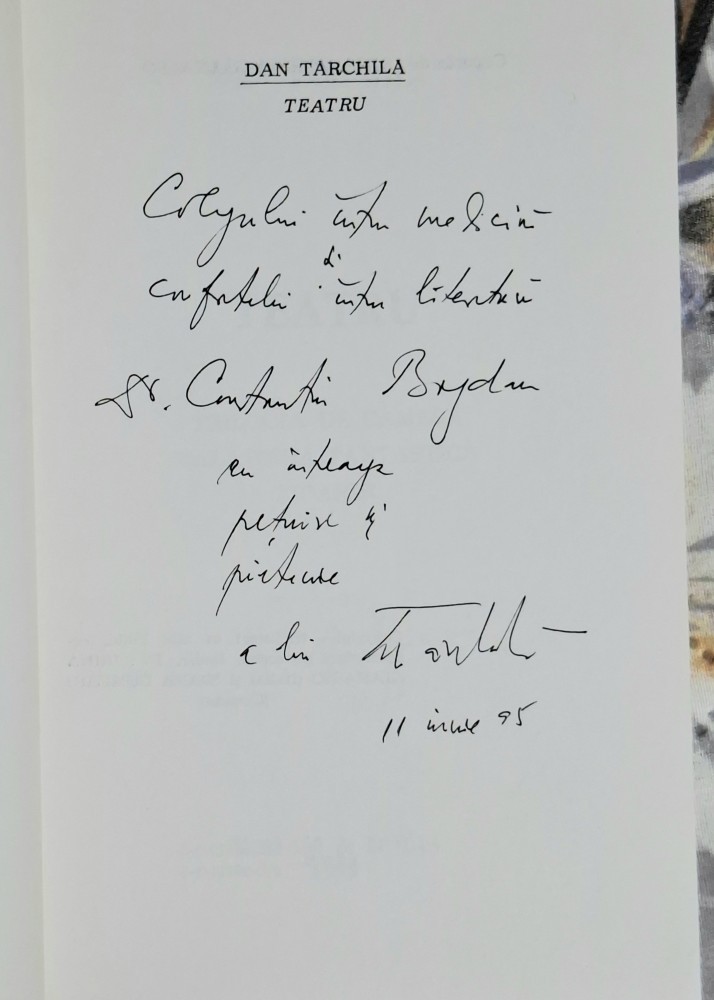 DAN TĂRCHILĂ
TEATRU
Colegului întru medicină
și
confratelui întru literatură
Dr. Constantin Bogdan
cu înteaga
prețuire și
prietenie
a lui Tărchilă
11 iunie 95